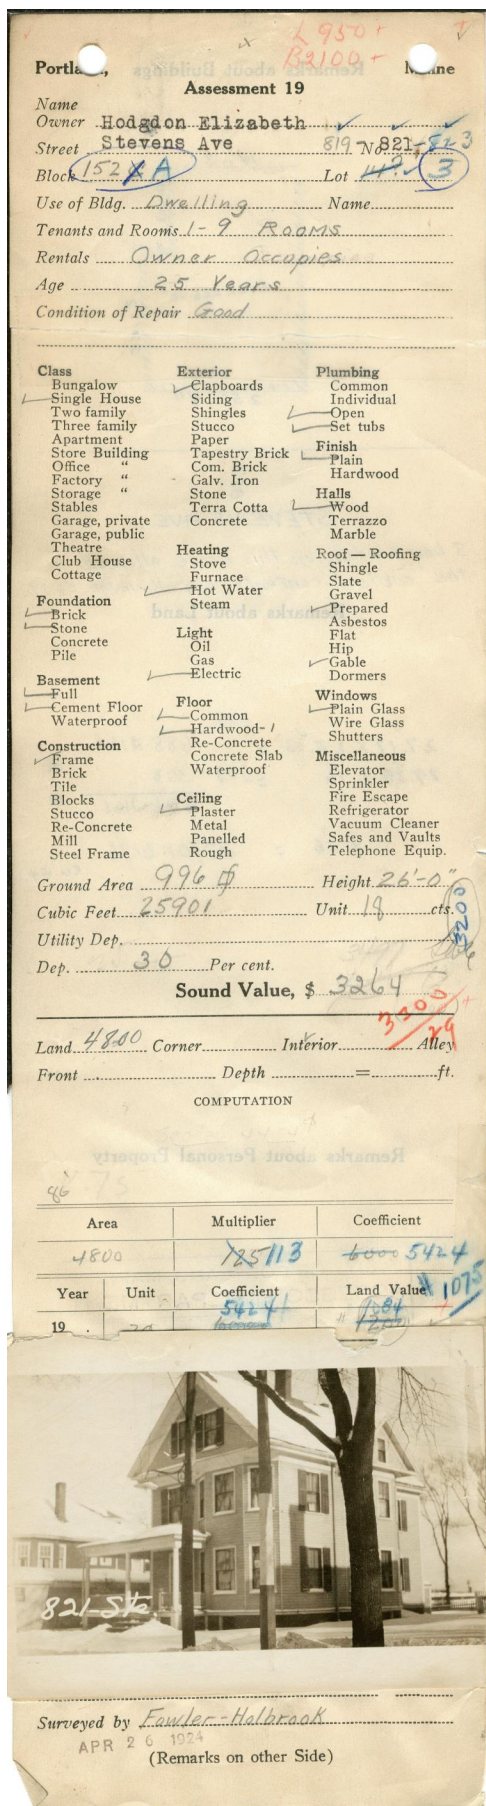 L 950+
B2100+
Portland, Maine
Assessment 19
Name
Owner Hodgdon Elizabeth
Street Stevens Ave 819- No. 821-823
Block 152 A Lot 3
Use of Bldg. Dwelling Name
Tenants and Rooms 1-9 Rooms
Rentals Owner Occupies
Age 25 Years
Condition of Repair Good
Class
Bungalow
Single House
Two family
Three family
Apartment
Store Building
Office "
Factory "
Storage "
Stables
Garage, private
Garage, public
Theatre
Club House
Cottage
Foundation
Brick
Stone
Concrete
Pile
Basement
Full
Cement Floor
Waterproof
Construction
Frame
Brick
Tile
Blocks
Stucco
Re-Concrete
Mill
Steel Frame
Exterior
Clapboards
Siding
Shingles
Stucco
Paper
Tapestry Brick
Com. Brick
Galv. Iron
Stone
Terra Cotta
Concrete
Heating
Stove
Furnace
Hot Water
Steam
Light
Oil
Gas
Electric
Floor
Common
Hardwood-1
Re-Concrete
Concrete Slab
Waterproof
Ceiling
Plaster
Metal
Panelled
Rough
Plumbing
Common
Individual
Open
Set tubs
Finish
Plain
Hardwood
Halls
Wood
Terrazzo
Marble
Roof — Roofing
Shingle
Slate
Gravel
Prepared
Asbestos
Flat
Hip
Gable
Dormers
Windows
Plain Glass
Wire Glass
Shutters
Miscellaneous
Elevator
Sprinkler
Fire Escape
Refrigerator
Vacuum Cleaner
Safes and Vaults
Telephone Equip.
Ground Area 996 Height 26'-0"
Cubic Feet 25901 Unit 18 cts.
3200
Utility Dep.
Dep. 30 Per cent.
Sound Value, $ 3264
3300/29
Land 4800 Corner Interior Alley
Front Depth = ft.
COMPUTATION
86
Area Multiplier Coefficient
4800 125 113 6000 5424
Year Unit Coefficient Land Value 1075
19 20 5424 1084 1200
821 Ste.
Surveyed by Fowler-Holbrook
APR 26 1924
(Remarks on other Side)